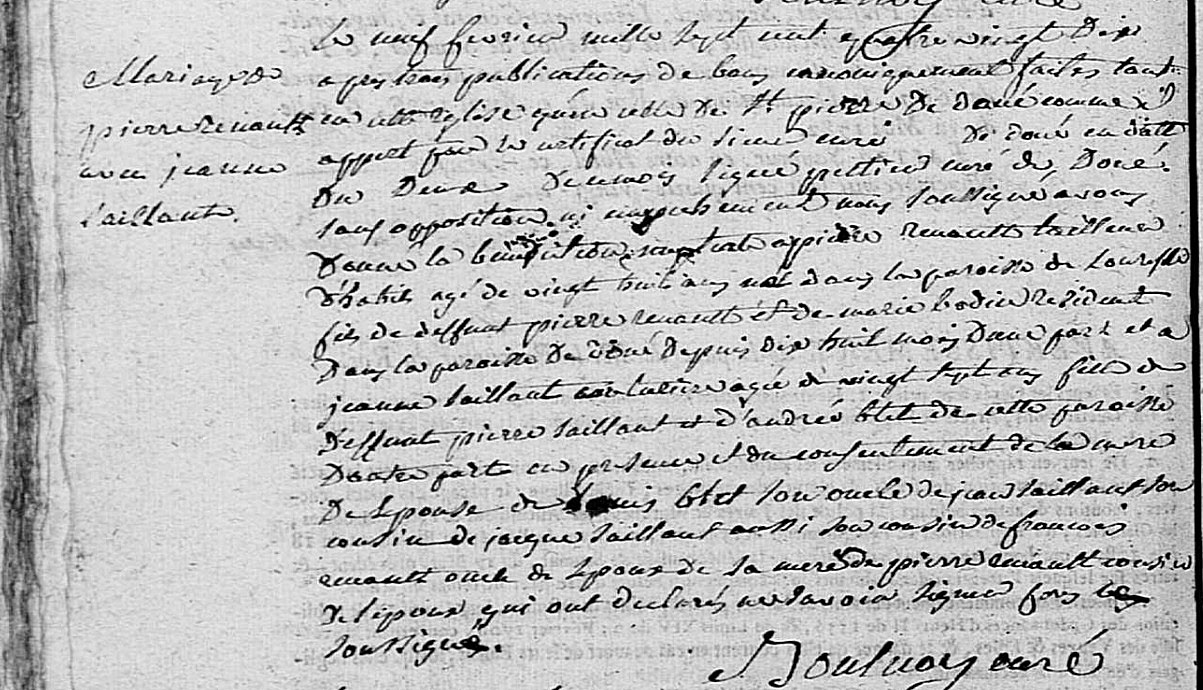 Le neuf fevrier mille sept cent quatre vingt dix
Mariage de
pierre renault
avec jeanne
saillant.
apres trois publications de bans canoniquement faites tant
en cette eglise qu'en celle de St pierre de doué comme il
appert par le certificat du sieur curé de doué en datte
du deux de ce mois signé curé de Doué.
sans opposition ni empechement nous soussigné avons
donné la benediction nuptiale a pierre renault tailleur
d'habits agé de vingt huit ans né dans la paroisse de Louresse
fils de deffunt pierre renault et de marie bodin resident
dans la paroisse de doué depuis dix huit mois d'une part et a
jeanne saillant couturiere agée de vingt sept ans fille de
deffunt pierre saillant et d'andrée de cette paroisse
d'autre part en presence et du consentement de la mere
de l'epouse de louis son oncle de jean saillant son
cousin de jacque saillant aussi son cousin de francois
renault oncle de l'epoux de sa mere de pierre renault cousin
de l'epoux qui ont declarés ne savoir signer fors les
soussignés.
Boulnoy curé